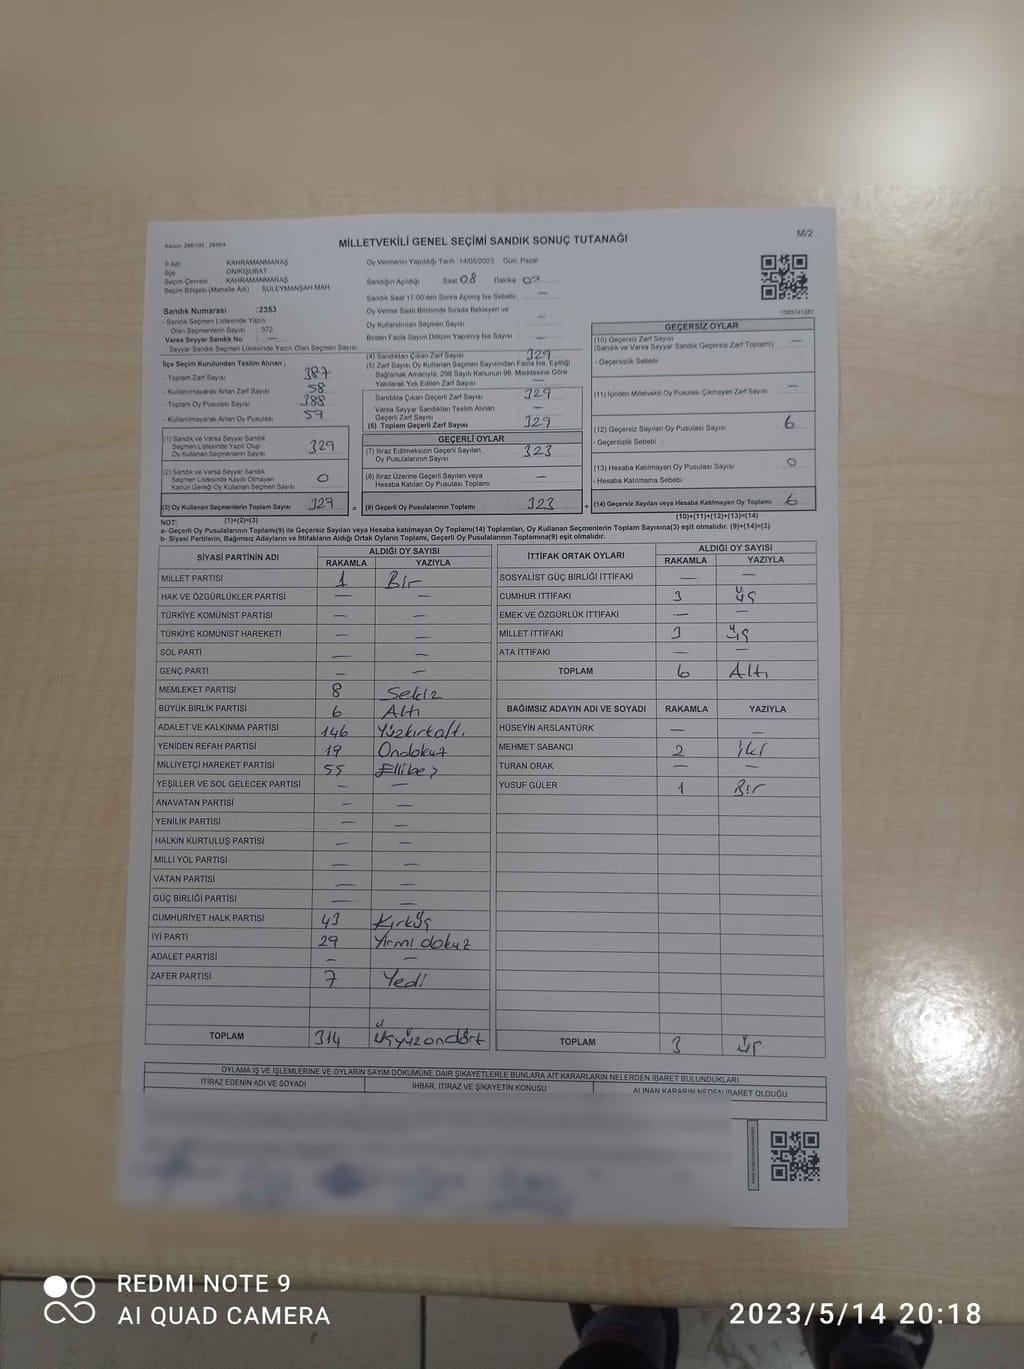 Kanun: 298/105 , 2839/4
MİLLETVEKİLİ GENEL SEÇİMİ SANDIK SONUÇ TUTANAĞI
M/2
İl Adı KAHRAMANMARAŞ
İlçe ONİKİŞUBAT
Seçim Çevresi KAHRAMANMARAŞ
Seçim Bölgesi (Mahalle Adı) : SULEYMANŞAH MAH
Sandık Numarası :2353
- Sandık Seçmen Listesinde Yazılı
Olan Seçmenlerin Sayısı : 372
Varsa Seyyar Sandık No —
- Seyyar Sandık Seçmen Listesinde Yazılı Olan Seçmen Sayısı
Oy Vermenin Yapıldığı Tarih :14/05/2023 Gün: Pazar
Sandığın Açıldığı Saat 08 Dakika 00
Sandık Saat 17:00'den Sonra Açılmış İse Sebebi : —
Oy Verme Saati Bitiminde Sırada Bekleyen ve
Oy Kullandırılan Seçmen Sayısı —
Birden Fazla Sayım Döküm Yapılmış İse Sayısı : —
1583741287
İlçe Seçim Kurulundan Teslim Alınan ;
- Toplam Zarf Sayısı 387
- Kullanılmayarak Artan Zarf Sayısı 58
- Toplam Oy Pusulası Sayısı 388
- Kullanılmayarak Artan Oy Pusulası 59
(1) Sandık ve Varsa Seyyar Sandık
Seçmen Listesinde Yazılı Olup
Oy Kullanan Seçmenlerin Sayısı 329
(2) Sandık ve Varsa Seyyar Sandık
Seçmen Listesinde Kaydı Olmayan
Kanun Gereği Oy Kullanan Seçmen Sayısı 0
(3) Oy Kullanan Seçmenlerin Toplam Sayısı 329 =
(1)+(2)=(3)
(4) Sandıktan Çıkan Zarf Sayısı 329
(5) Zarf Sayısı Oy Kullanan Seçmen Sayısından Fazla İse, Eşitliği
Sağlamak Amacıyla, 298 Sayılı Kanunun 98. Maddesine Göre
Yakılarak Yok Edilen Zarf Sayısı —
Sandıkta Çıkan Geçerli Zarf Sayısı 329
Varsa Seyyar Sandıktan Teslim Alınan
Geçerli Zarf Sayısı —
(6) Toplam Geçerli Zarf Sayısı 329
GEÇERLİ OYLAR
(7) İtiraz Edilmeksizin Geçerli Sayılan
Oy Pusulalarının Sayısı 323
(8) İtiraz Üzerine Geçerli Sayılan veya
Hesaba Katılan Oy Pusulası Toplamı —
(9) Geçerli Oy Pusulalarının Toplamı 323 +
GEÇERSİZ OYLAR
(10) Geçersiz Zarf Sayısı
(Sandık ve Varsa Seyyar Sandık Geçersiz Zarf Toplamı) —
- Geçersizlik Sebebi :
(11) İçinden Milletvekili Oy Pusulası Çıkmayan Zarf Sayısı —
(12) Geçersiz Sayılan Oy Pusulası Sayısı 6
- Geçersizlik Sebebi :
(13) Hesaba Katılmayan Oy Pusulası Sayısı 0
- Hesaba Katılmama Sebebi :
(14) Geçersiz Sayılan veya Hesaba Katılmayan Oy Toplamı 6
(10)+(11)+(12)+(13)=(14)
NOT:
a- Geçerli Oy Pusulalarının Toplamı(9) ile Geçersiz Sayılan veya Hesaba katılmayan Oy Toplamı(14) Toplamları, Oy Kullanan Seçmenlerin Toplam Sayısına(3) eşit olmalıdır. (9)+(14)=(3)
b- Siyasi Partilerin, Bağımsız Adayların ve İttifakların Aldığı Ortak Oyların Toplamı, Geçerli Oy Pusulalarının Toplamına(9) eşit olmalıdır.
SİYASİ PARTİNİN ADI ALDIĞI OY SAYISI
RAKAMLA YAZIYLA
MİLLET PARTİSİ 1 Bir
HAK VE ÖZGÜRLÜKLER PARTİSİ — —
TÜRKİYE KOMÜNİST PARTİSİ — —
TÜRKİYE KOMÜNİST HAREKETİ — —
SOL PARTİ — —
GENÇ PARTİ — —
MEMLEKET PARTİSİ 8 Sekiz
BÜYÜK BİRLİK PARTİSİ 6 Altı
ADALET VE KALKINMA PARTİSİ 146 Yüzkırkaltı
YENİDEN REFAH PARTİSİ 19 Ondokuz
MİLLİYETÇİ HAREKET PARTİSİ 55 Ellibeş
YEŞİLLER VE SOL GELECEK PARTİSİ — —
ANAVATAN PARTİSİ — —
YENİLİK PARTİSİ — —
HALKIN KURTULUŞ PARTİSİ — —
MİLLİ YOL PARTİSİ — —
VATAN PARTİSİ — —
GÜÇ BİRLİĞİ PARTİSİ — —
CUMHURİYET HALK PARTİSİ 43 Kırküç
İYİ PARTİ 29 Yirmi dokuz
ADALET PARTİSİ — —
ZAFER PARTİSİ 7 Yedi
TOPLAM 314 Üçyüzondört
İTTİFAK ORTAK OYLARI ALDIĞI OY SAYISI
RAKAMLA YAZIYLA
SOSYALİST GÜÇ BİRLİĞİ İTTİFAKI — —
CUMHUR İTTİFAKI 3 üç
EMEK VE ÖZGÜRLÜK İTTİFAKI — —
MİLLET İTTİFAKI 3 üç
ATA İTTİFAKI — —
TOPLAM 6 Altı
BAĞIMSIZ ADAYIN ADI VE SOYADI RAKAMLA YAZIYLA
HÜSEYİN ARSLANTÜRK — —
MEHMET SABANCI 2 iki
TURAN ORAK — —
YUSUF GÜLER 1 Bir
TOPLAM 3 üç
OYLAMA İŞ VE İŞLEMLERİNE VE OYLARIN SAYIM DÖKÜMÜNE DAİR ŞİKAYETLERLE BUNLARA AİT KARARLARIN NELERDEN İBARET BULUNDUKLARI
İTİRAZ EDENİN ADI VE SOYADI İHBAR, İTİRAZ VE ŞİKAYETİN KONUSU ALINAN KARARIN NEDEN İBARET OLDUĞU
REDMI NOTE 9
AI QUAD CAMERA
2023/5/14 20:18